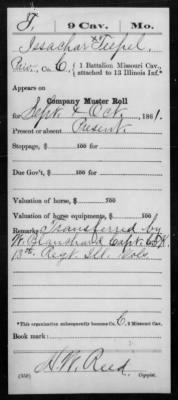 T. 9 Cav. Mo.
Issachar Teepel.
Priv., Co. C, 1 Battalion Missouri Cav., attached to 13 Illinois Inf.*
Appears on
Company Muster Roll
for Sept & Oct, 1861.
Present or absent Present.
Stoppage, $ 100 for
Due Gov't, $ 100 for
Valuation of horse, $ 100
Valuation of horse equipments, $ 100
Remarks: Transferred by
W. Blanchard Capt. Co. K
13th Regt Ill. Vols.
*This organization subsequently became Co. C, 9 Missouri Cav.
Book mark:
H. W. Reed
(358) Copyist.